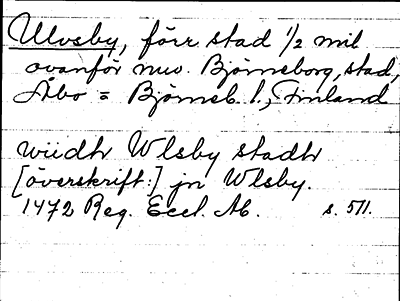 Ulvsby, förr stad ½ mil
ovanför nuv. Björneborg, stad,
Åbo = Björneb. l., Finland
wiidh Wlsby stadh
[överskrift:] jn Wlsby.
1472 Reg. Eccl. Ab. s. 511.